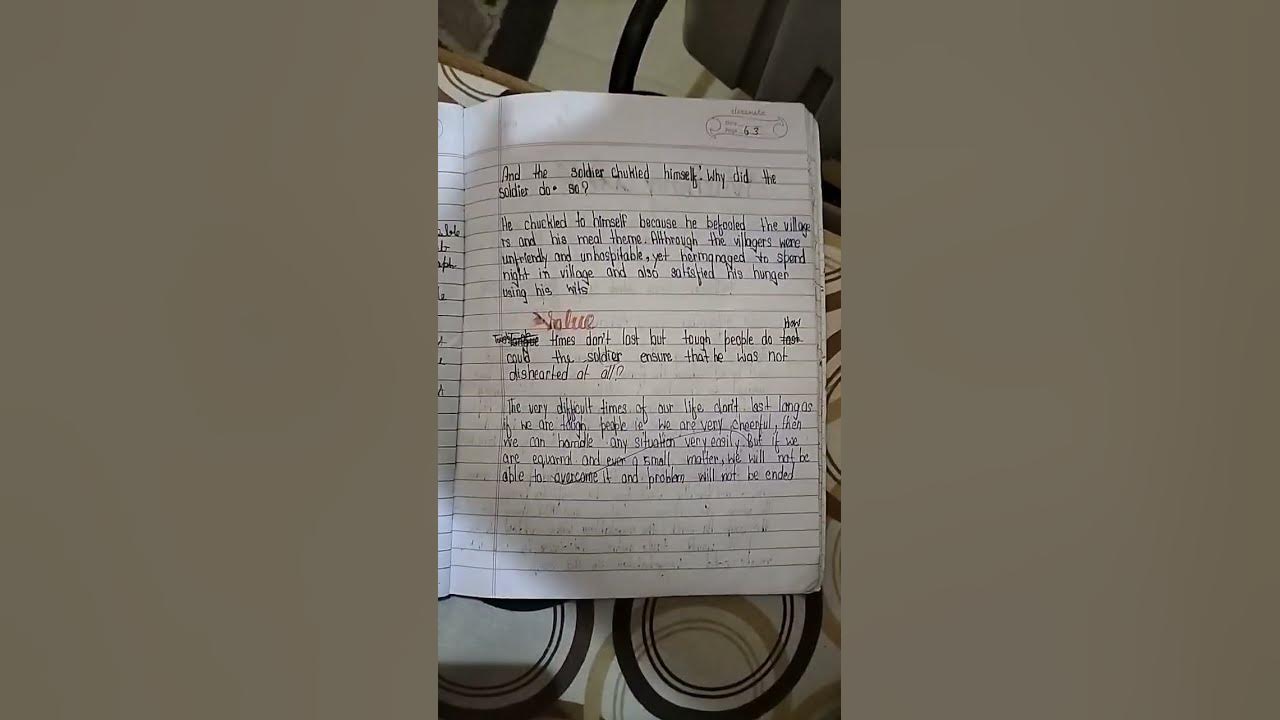 classmate
Date
Page 63
And the soldier chukled himself'. Why did the
soldier do so?
He chuckled to himself because he befooled the village
rs and his meal theme. Althrough the villagers were
unfriendly and unhospitable, yet hermanaged to spend
night in village and also satisfied his hunger
using his wits
Value
How
times don't last but tough people do last
could the soldier ensure that he was not
dishearted at all?
The very difficult times of our life don't last long as
if we are tough people ie we are very cheerful, then
we can handle any situation very easily. But if we
are equarral and even a small matter, we will not be
able to overcome it and problem will not be ended